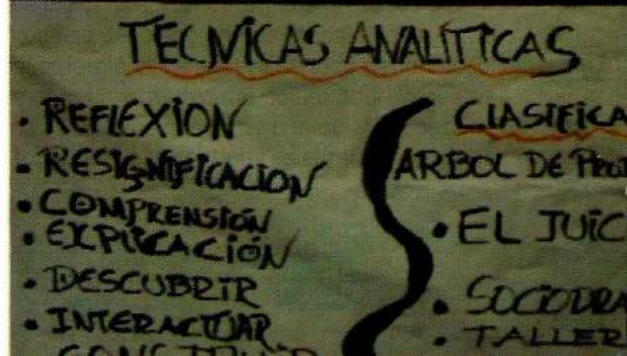 TECNICAS ANALITICAS
• REFLEXION
• RESIGNIFICACION
• COMPRENSIÓN
• EXPLICACIÓN
• DESCUBRIR
• INTERACTUAR
CONSTRUIR
CLASIFICA
ARBOL DE PROB
• EL JUIC
• SOCIODRA
• TALLER